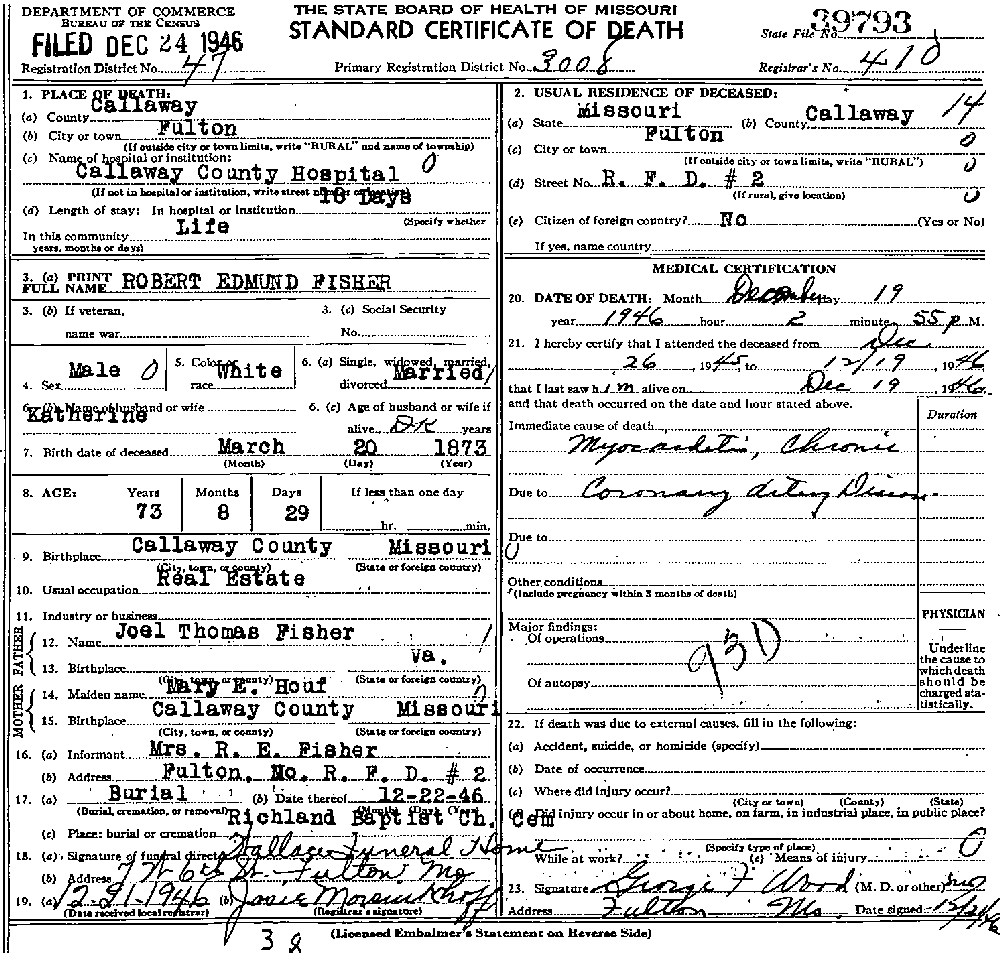 DEPARTMENT OF COMMERCE
BUREAU OF THE CENSUS
FILED DEC 24 1946
Registration District No. 47
THE STATE BOARD OF HEALTH OF MISSOURI
STANDARD CERTIFICATE OF DEATH
Primary Registration District No. 3008
State File No. 39793
Registrar's No. 410
1. PLACE OF DEATH:
(a) County Callaway
(b) City or town Fulton
(If outside city or town limits, write "RURAL" and name of township)
(c) Name of hospital or institution:
Callaway County Hospital 0
(If not in hospital or institution, write street number or location)
(d) Length of stay: In hospital or institution 10 Days
(Specify whether
In this community Life
years, months or days)
2. USUAL RESIDENCE OF DECEASED:
(a) State Missouri (b) County Callaway 14
(c) City or town Fulton 0
(If outside city or town limits, write "RURAL") 0
(d) Street No. R. F. D. # 2
(If rural, give location) 0
(e) Citizen of foreign country? No (Yes or No)
If yes, name country
3. (a) PRINT FULL NAME ROBERT EDMUND FISHER
3. (b) If veteran, name war
3. (c) Social Security No.
4. Sex Male 0
5. Color or race White
6. (a) Single, widowed, married, divorced Married 1
6. (b) Name of husband or wife Katherine
6. (c) Age of husband or wife if alive DK years
7. Birth date of deceased March 20 1873
(Month) (Day) (Year)
8. AGE: Years Months Days If less than one day
73 8 29 hr. min.
9. Birthplace Callaway County Missouri 0
(City, town, or county) (State or foreign country)
10. Usual occupation Real Estate
11. Industry or business
FATHER
12. Name Joel Thomas Fisher 1
13. Birthplace Va.
(City, town, or county) (State or foreign country)
MOTHER
14. Maiden name Mary E. Houf 0
15. Birthplace Callaway County Missouri
(City, town, or county) (State or foreign country)
16. (a) Informant Mrs. R. E. Fisher
(b) Address Fulton, No. R. F. D. # 2
17. (a) Burial (b) Date thereof 12-22-46
(Burial, cremation, or removal) (Month) (Day) (Year)
(c) Place: burial or cremation Richland Baptist Ch. Cem
18. (a) Signature of funeral director Wallace Funeral Home
(b) Address 7 W 6th St. Fulton, Mo
19. (a) 12-21-1946 (b) Josie
(Date received local registrar) (Registrar's signature)
MEDICAL CERTIFICATION
20. DATE OF DEATH: Month December day 19
year 1946 hour 2 minute 55 P. M.
21. I hereby certify that I attended the deceased from Dec
26 1945, to 12/19, 1946
that I last saw him alive on Dec 19 1946
and that death occurred on the date and hour stated above.
Duration
Immediate cause of death
Myocarditis, Chronic
Due to Coronary artery Disease
Due to
Other conditions
(Include pregnancy within 3 months of death)
Major findings:
Of operations
93D
Of autopsy
PHYSICIAN
Underline
the cause to
which death
should be
charged sta-
tistically.
22. If death was due to external causes, fill in the following:
(a) Accident, suicide, or homicide (specify)
(b) Date of occurrence
(c) Where did injury occur?
(City or town) (County) (State)
(d) Did injury occur in or about home, on farm, in industrial place, in public place?
(Specify type of place) 0
While at work? (e) Means of injury
23. Signature George F Wood (M. D. or other) MD
Address Fulton Mo. Date signed 12/21/46
(Licensed Embalmer's Statement on Reverse Side)
38